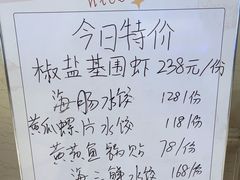 今日特价
椒盐基围虾 238元/份
海肠水饺 128/份
黄瓜螺片水饺 118/份
黄菇鱼锅贴 78/份
海三鲜水饺 168/份